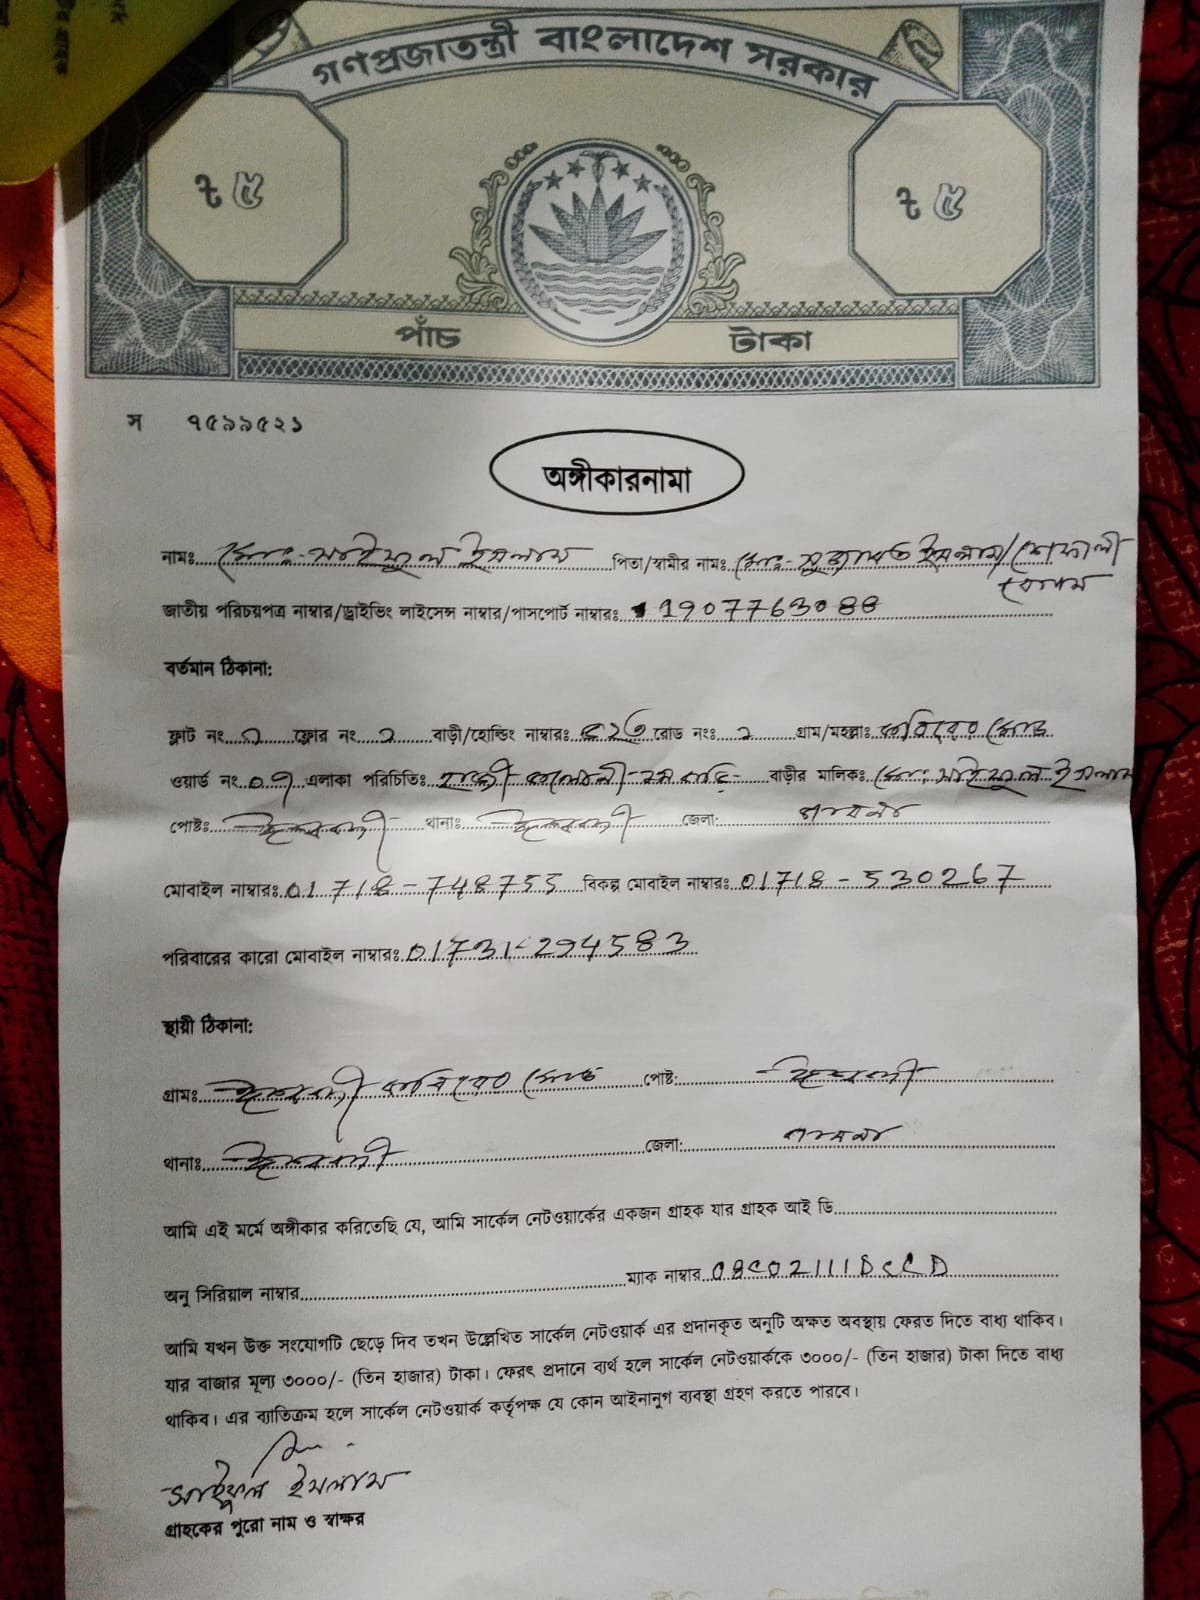 গণপ্রজাতন্ত্রী বাংলাদেশ সরকার
৳ ৫ ৳ ৫
পাঁচ টাকা
স ৭৫৯৯৫২১
অঙ্গীকারনামা
নামঃ মোঃ-সাইফুল ইসলাম পিতা/স্বামীর নামঃ মোঃ- ইসলাম/শেফালী
বেগম
জাতীয় পরিচয়পত্র নাম্বার/ড্রাইভিং লাইসেন্স নাম্বার/পাসপোর্ট নাম্বারঃ 1907763088
বর্তমান ঠিকানা:
ফ্লাট নং ফ্লোর নং ২ বাড়ী/হোল্ডিং নাম্বারঃ রোড নংঃ গ্রাম/মহল্লাঃ মোড়
ওয়ার্ড নং ০৭ এলাকা পরিচিতিঃ বাড়ীর মালিকঃ মোঃ সাইফুল ইসলাম
পোষ্টঃ ঈশ্বরদী থানাঃ ঈশ্বরদী জেলা: পাবনা
মোবাইল নাম্বারঃ 01718-748755 বিকল্প মোবাইল নাম্বারঃ 01718-530267
পরিবারের কারো মোবাইল নাম্বারঃ 01731-294583
স্থায়ী ঠিকানা:
গ্রামঃ ঈশ্বরদী মোড় পোষ্ট: ঈশ্বরদী
থানাঃ ঈশ্বরদী জেলা: পাবনা
আমি এই মর্মে অঙ্গীকার করিতেছি যে, আমি সার্কেল নেটওয়ার্কের একজন গ্রাহক যার গ্রাহক আই ডি
অনু সিরিয়াল নাম্বার ম্যাক নাম্বার
আমি যখন উক্ত সংযোগটি ছেড়ে দিব তখন উল্লেখিত সার্কেল নেটওয়ার্ক এর প্রদানকৃত অনুটি অক্ষত অবস্থায় ফেরত দিতে বাধ্য থাকিব।
যার বাজার মূল্য ৩০০০/- (তিন হাজার) টাকা। ফেরৎ প্রদানে ব্যর্থ হলে সার্কেল নেটওয়ার্ককে ৩০০০/- (তিন হাজার) টাকা দিতে বাধ্য
থাকিব। এর ব্যাতিক্রম হলে সার্কেল নেটওয়ার্ক কর্তৃপক্ষ যে কোন আইনানুগ ব্যবস্থা গ্রহণ করতে পারবে।
সাইফুল ইসলাম
গ্রাহকের পুরো নাম ও স্বাক্ষর